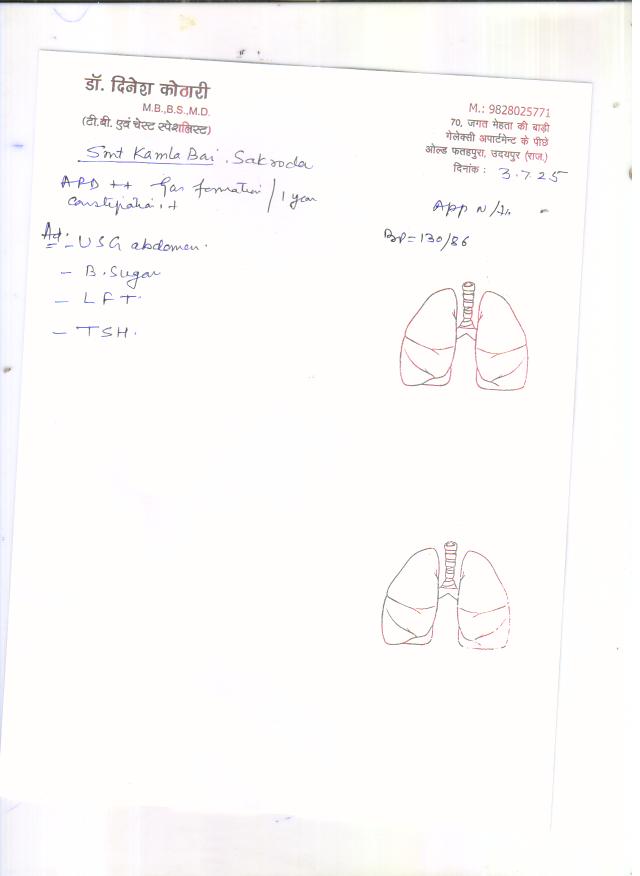 डॉ. दिनेश कोठारी
M.B.,B.S.,M.D.
(टी.बी. एवं चेस्ट स्पेशलिस्ट)
M.: 9828025771
70, जगत मेहता की बाड़ी
गेलेक्सी अपार्टमेन्ट के पीछे
ओल्ड फतहपुरा, उदयपुर (राज.)
दिनांक : 3.7.25
Smt Kamla Bai . Sakroda
APD ++ Gas formation / 1 year
constipation . +
App N
BP = 130/86
Ad: - USG abdomen.
- B. Sugar
- LFT.
- TSH.